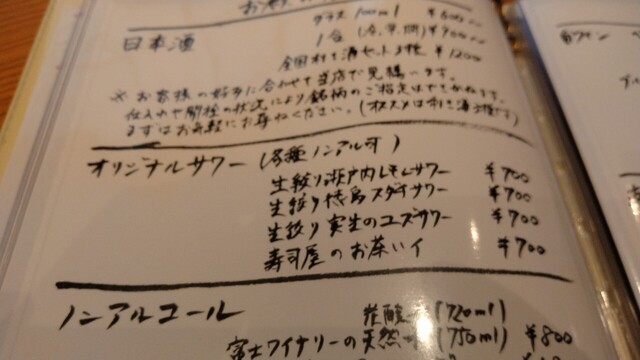 グラス 100ml ¥600〜
日本酒 1合(冷,常,燗) ¥900〜
全国利き酒セット3種 ¥1200
※ お客様の好みに合わせて当店で見繕います。
仕入れや開栓の状況により銘柄のご指定はできかねます。
まずはお気軽にお尋ねください。(オススメは利き酒3種です)
オリジナルサワー (各種ノンアル可)
生絞り瀬戸内レモンサワー ¥700
生絞り徳島スダチサワー ¥700
生絞り実生のユズサワー ¥700
寿司屋のお茶ハイ ¥700
ノンアルコール 炭酸 (720ml)
富士ワイナリーの天然 (750ml) ¥800